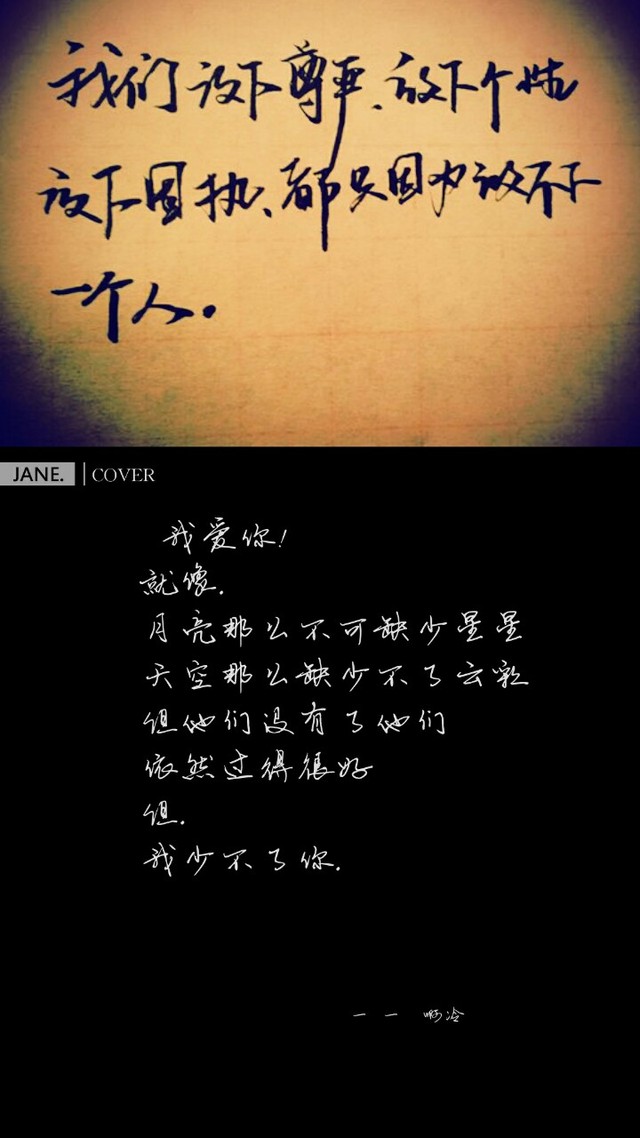 我们放下尊严、放下个性
放下固执、都只因为放不下
一个人。
JANE. | COVER
我爱你!
就像.
月亮那么不可缺少星星
天空那么缺少不了云彩
但他们没有了他们
依然过得很好
但.
我少不了你.
一一 啊冷